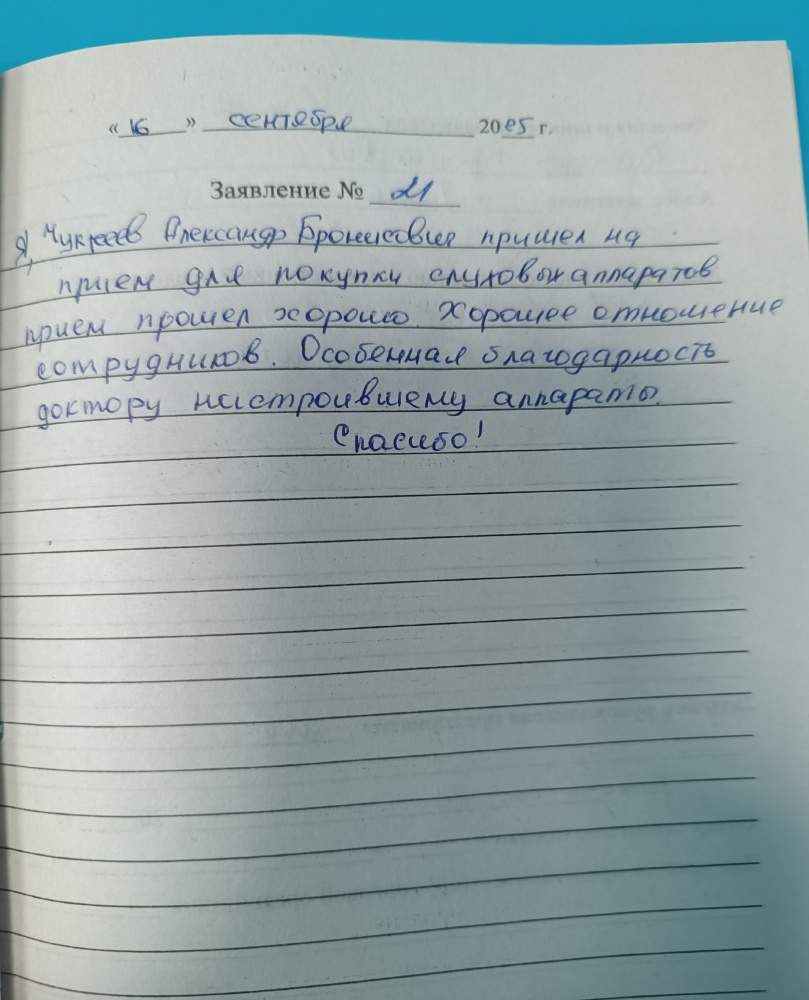 « 16 » сентября 2025 г.
Заявление № 21
Я, Чукреев Александр Брониславович пришел на
прием для покупки слуховых аппаратов
прием прошел хорошо. Хорошее отношение
сотрудников. Особенная благодарность
доктору настроившему аппараты.
Спасибо!